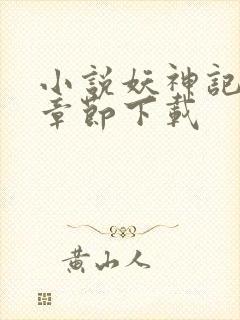 小說妖神記
章節下載
黃山人